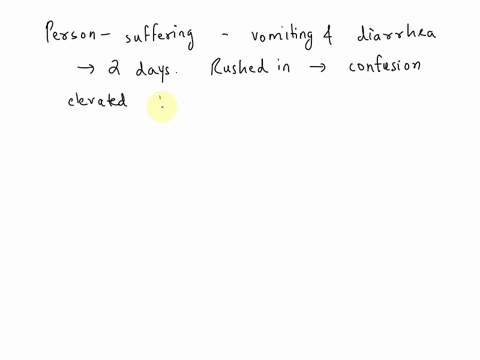 Person - suffering - vomiting & diarrhea
→ 2 days. Rushed in → confusion
elevated